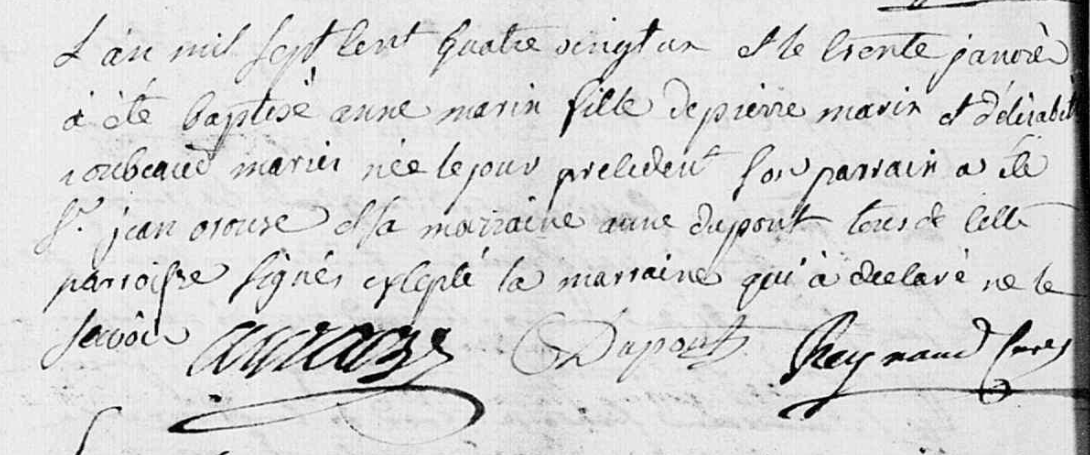 L'an mil sept cent quatre vingt un et le trente janvier
à été baptisé anne marin fille de pierre marin et d'élisabeth
roubeaud mariés née le jour precedent son parrain a été
Sr. jean et sa marraine anne dupont tous de cette
parroisse signés excepté la marraine qui à declaré ne le
scavoir Dupont Reynaud Curé